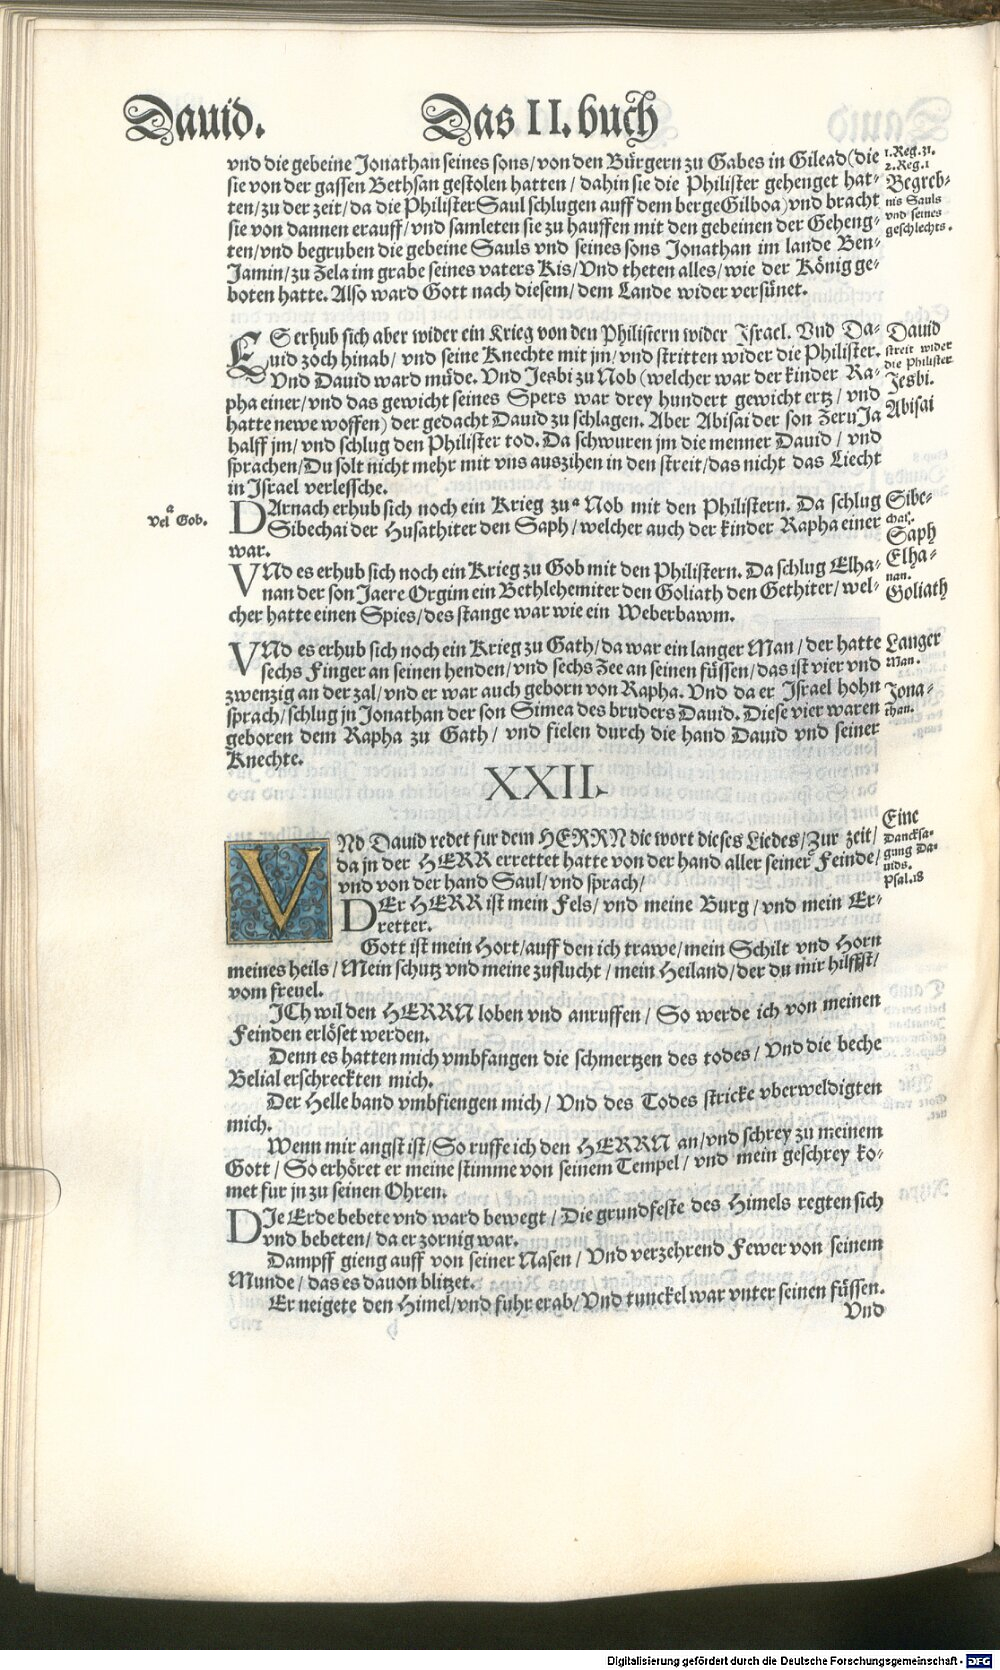 Dauid. Das II. buch
vnd die gebeine Jonathan seines sons/von den Bürgern zu Gabes in Gilead (die
sie von der gassen Bethsan gestolen hatten / dahin sie die Philister gehenget hat-
ten/zu der zeit/da die Philister Saul schlugen auff dem berge Gilboa) vnd bracht
sie von dannen erauff/vnd samleten sie zu hauffen mit den gebeinen der Geheng-
ten/vnd begruben die gebeine Sauls vnd seines sons Jonathan im lande Ben-
Jamin/zu Zela im grabe seines vaters Kis/Vnd theten alles/wie der König ge-
boten hatte. Also ward Gott nach diesem/dem Lande wider versünet.
1.Reg.31.
2.Reg.1
Begreb-
nis Sauls
vnd seines
geschlechts.
ES erhub sich aber wider ein Krieg von den Philistern wider Israel. Vnd Da-
uid zoch hinab/ vnd seine Knechte mit jm/vnd stritten wider die Philister.
Vnd Dauid ward müde. Vnd Jesbi zu Nob (welcher war der kinder Ra-
pha einer/vnd das gewicht seines Spers war drey hundert gewicht ertz / vnd
hatte newe woffen) der gedacht Dauid zu schlagen. Aber Abisai der son ZeruJa
halff jm/ vnd schlug den Philister tod. Da schwuren jm die menner Dauid / vnd
sprachen/Du solt nicht mehr mit vns auszihen in den streit/das nicht das Liecht
in Israel verlessche.
Dauid
streit wider
die Philister
Jesbi.
Abisai
DArnach erhub sich noch ein Krieg zu a Nob mit den Philistern. Da schlug
Sibechai der Husathiter den Saph/welcher auch der kinder Rapha einer
war.
a
Vel Gob.
Sibe-
chai.
Saph
VNd es erhub sich noch ein Krieg zu Gob mit den Philistern. Da schlug Elha-
nan der son Jaere Orgim ein Bethlehemiter den Goliath den Gethiter/wel-
cher hatte einen Spies/des stange war wie ein Weberbawm.
Elha-
nan.
Goliath
VNd es erhub sich noch ein Krieg zu Gath/da war ein langer Man / der hatte
sechs Finger an seinen henden/vnd sechs Zee an seinen füssen/das ist vier vnd
zwenzig an der zal/vnd er war auch geborn von Rapha. Vnd da er Israel hohn
sprach/schlug jn Jonathan der son Simea des bruders Dauid. Diese vier waren
geboren dem Rapha zu Gath/ vnd fielen durch die hand Dauid vnd seiner
Knechte.
Langer
Man.
Jona-
than.
XXII.
VNd Dauid redet fur dem HERRN die wort dieses Liedes/Zur zeit/
da jn der HERR errettet hatte von der hand aller seiner Feinde/
vnd von der hand Saul/vnd sprach/
DEr HERR ist mein Fels/vnd meine Burg/vnd mein Er-
retter.
Gott ist mein Hort/auff den ich trawe/mein Schilt vnd Horn
meines heils/Mein schutz vnd meine zuflucht/mein Heiland/der du mir hilffst/
vom freuel.
ICh wil den HERRN loben vnd anruffen / So werde ich von meinen
Feinden erlöset werden.
Denn es hatten mich vmbfangen die schmertzen des todes/ Vnd die beche
Belial erschreckten mich.
Der Helle band vmbfiengen mich / Vnd des Todes stricke vberweldigten
mich.
Wenn mir angst ist/So ruffe ich den HERRN an/vnd schrey zu meinem
Gott/So erhöret er meine stimme von seinem Tempel/ vnd mein geschrey ko-
met fur jn zu seinen Ohren.
DIe Erde bebete vnd ward bewegt / Die grundfeste des Himels regten sich
vnd bebeten/da er zornig war.
Dampff gieng auff von seiner Nasen/ Vnd verzehrend Fewer von seinem
Munde/das es dauon blitzet.
Er neigete den Himel/vnd fuhr erab/Vnd tunckel war vnter seinen füssen.
Vnd
Eine
Dancksa-
gung Da-
uids.
Psal.18
Digitalisierung gefördert durch die Deutsche Forschungsgemeinschaft - DFG